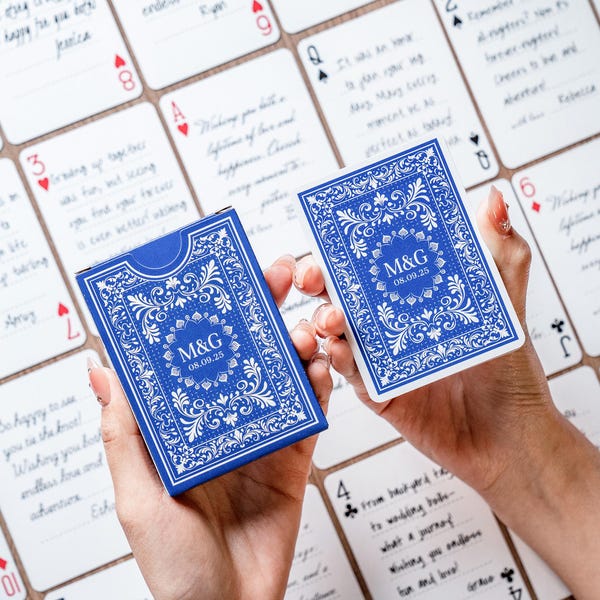 happy for you both
Jessica
8
endless
Ryan
9
A
Wishing you both a
lifetime of love and
happiness. Cherish
every moment
3
Growing up together
was fun, but seeing
you find your forever
is even better!
Q
It was an honor
to plan your big
day. May every
moment be as
perfect as today
Q
2
Remember our
all-nighters? Now it's
forever-nighters!
Cheers to love and
adventure!
with love Rebecca
6
Wishing you
lifetime of
happiness
every
J
April
7
So happy to see
you tie the knot!
Wishing you both
endless love and
adventure.
10
M&G
08.09.25
M&G
08.09.25
4
From backyard
to wedding bells-
what a journey!
Wishing you endless
fun and love!
Grace